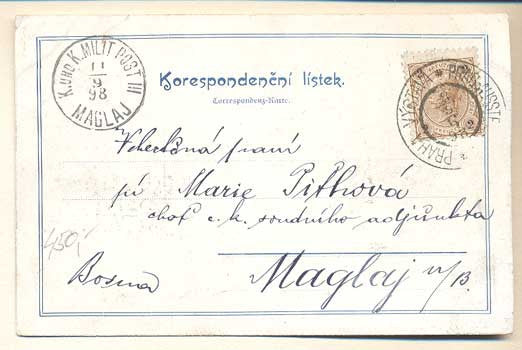 K.UND K. MILIT. POST III
11
9
98
MAGLAJ
Korespondenční lístek.
Correspondenz-Karte.
PRAHA VÝSTAVA
2
Velectěná paní
pí Marie Pithová
choť c. k. soudního adjunkta
Maglaj n/B.
Bosna
450,-